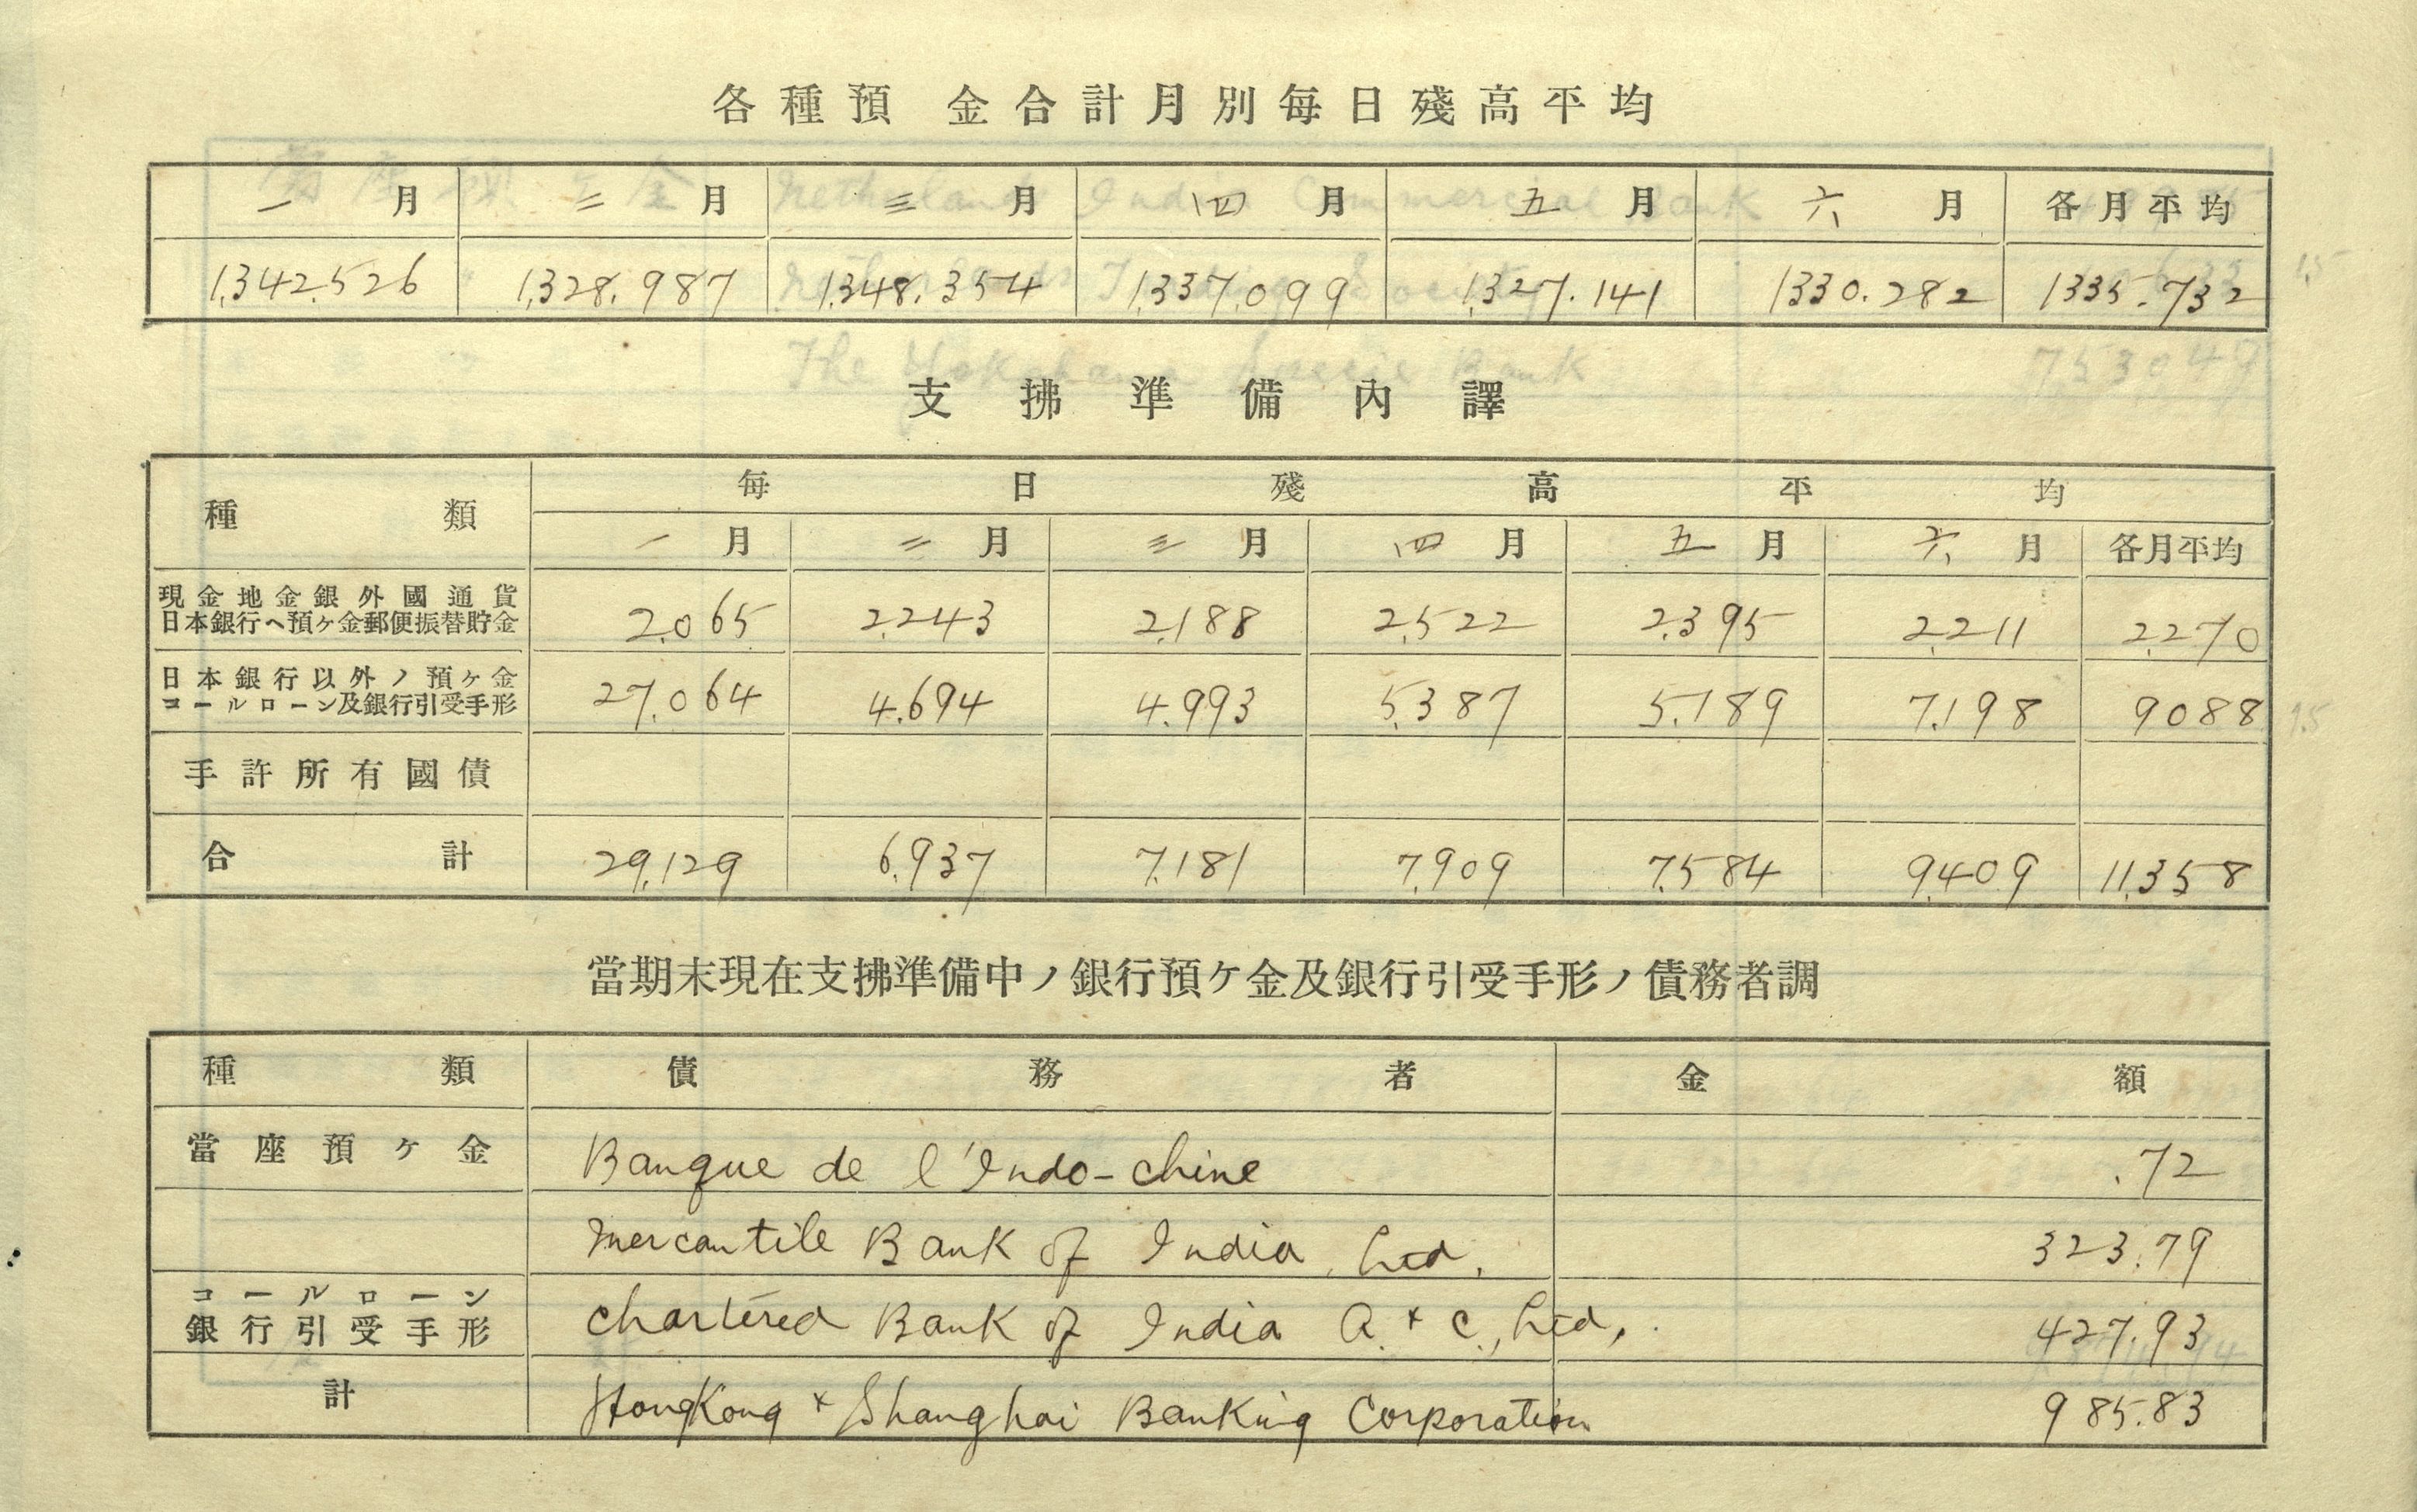 各種預金合計月別毎日殘高平均
一月 二月 三月 四月 五月 六月 各月平均
1,342,526 1,328,987 1,348,354 1,337,099 1,327,141 1330,282 1335,732
支拂準備內譯
種類 每日殘高平均
一月 二月 三月 四月 五月 六月 各月平均
現金地金銀外國通貨
日本銀行ヘ預ケ金郵便振替貯金 2,065 2,243 2,188 2,522 2,395 2,211 2,270
日本銀行以外ノ預ケ金
コールローン及銀行引受手形 27,064 4,694 4,993 5,387 5,189 7,198 9088
手許所有國債
合計 29,129 6,937 7,181 7,909 7,584 9,409 11,358
當期末現在支拂準備中ノ銀行預ケ金及銀行引受手形ノ債務者調
種類 債務者 金額
當座預ケ金 Banque de l'Indo-chine .72
Mercantile Bank of India, Ltd. 323.79
コールローン
銀行引受手形 Chartered Bank of India A. & C., Ltd. 427.93
計 HongKong & Shanghai Banking Corporation 985.83